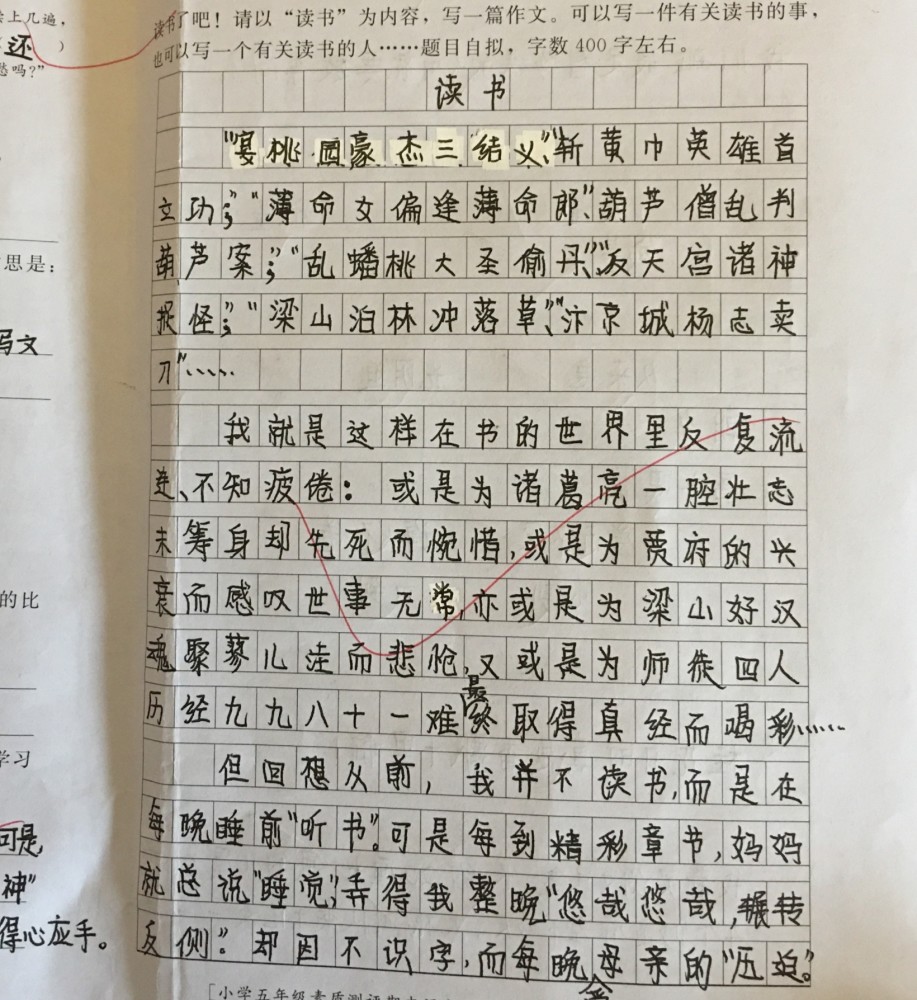 卷上几遍，
还 ）
愁吗?”
思是：
写文
的比
学习
可是
神”
得心应手。
读书了吧！请以“读书”为内容，写一篇作文。可以写一件有关读书的事，
也可以写一个有关读书的人……题目自拟，字数 400 字左右。
读书
“宴桃园豪杰三结义”、“斩黄巾英雄首
立功”；“薄命女偏逢薄命郎”、“葫芦僧乱判
葫芦案”；“乱蟠桃大圣偷丹”、“反天宫诸神
捉怪”；“梁山泊林冲落草”、“汴京城杨志卖
刀”……
我就是这样在书的世界里反复流
连、不知疲倦：或是为诸葛亮一腔壮志
未筹身却先死而惋惜，或是为贾府的兴
衰而感叹世事无常，亦或是为梁山好汉
魂聚蓼儿洼而悲怆，又或是为师徒四人
历经九九八十一难最终取得真经而喝彩……
但回想从前，我并不读书，而是在
每晚睡前“听书”。可是每到精彩章节，妈妈
就总说“睡觉”，弄得我整晚“悠哉悠哉，辗转
反侧”。却因不识字，而每晚母亲的“压迫”。
会
［小学五年级素质测评期末